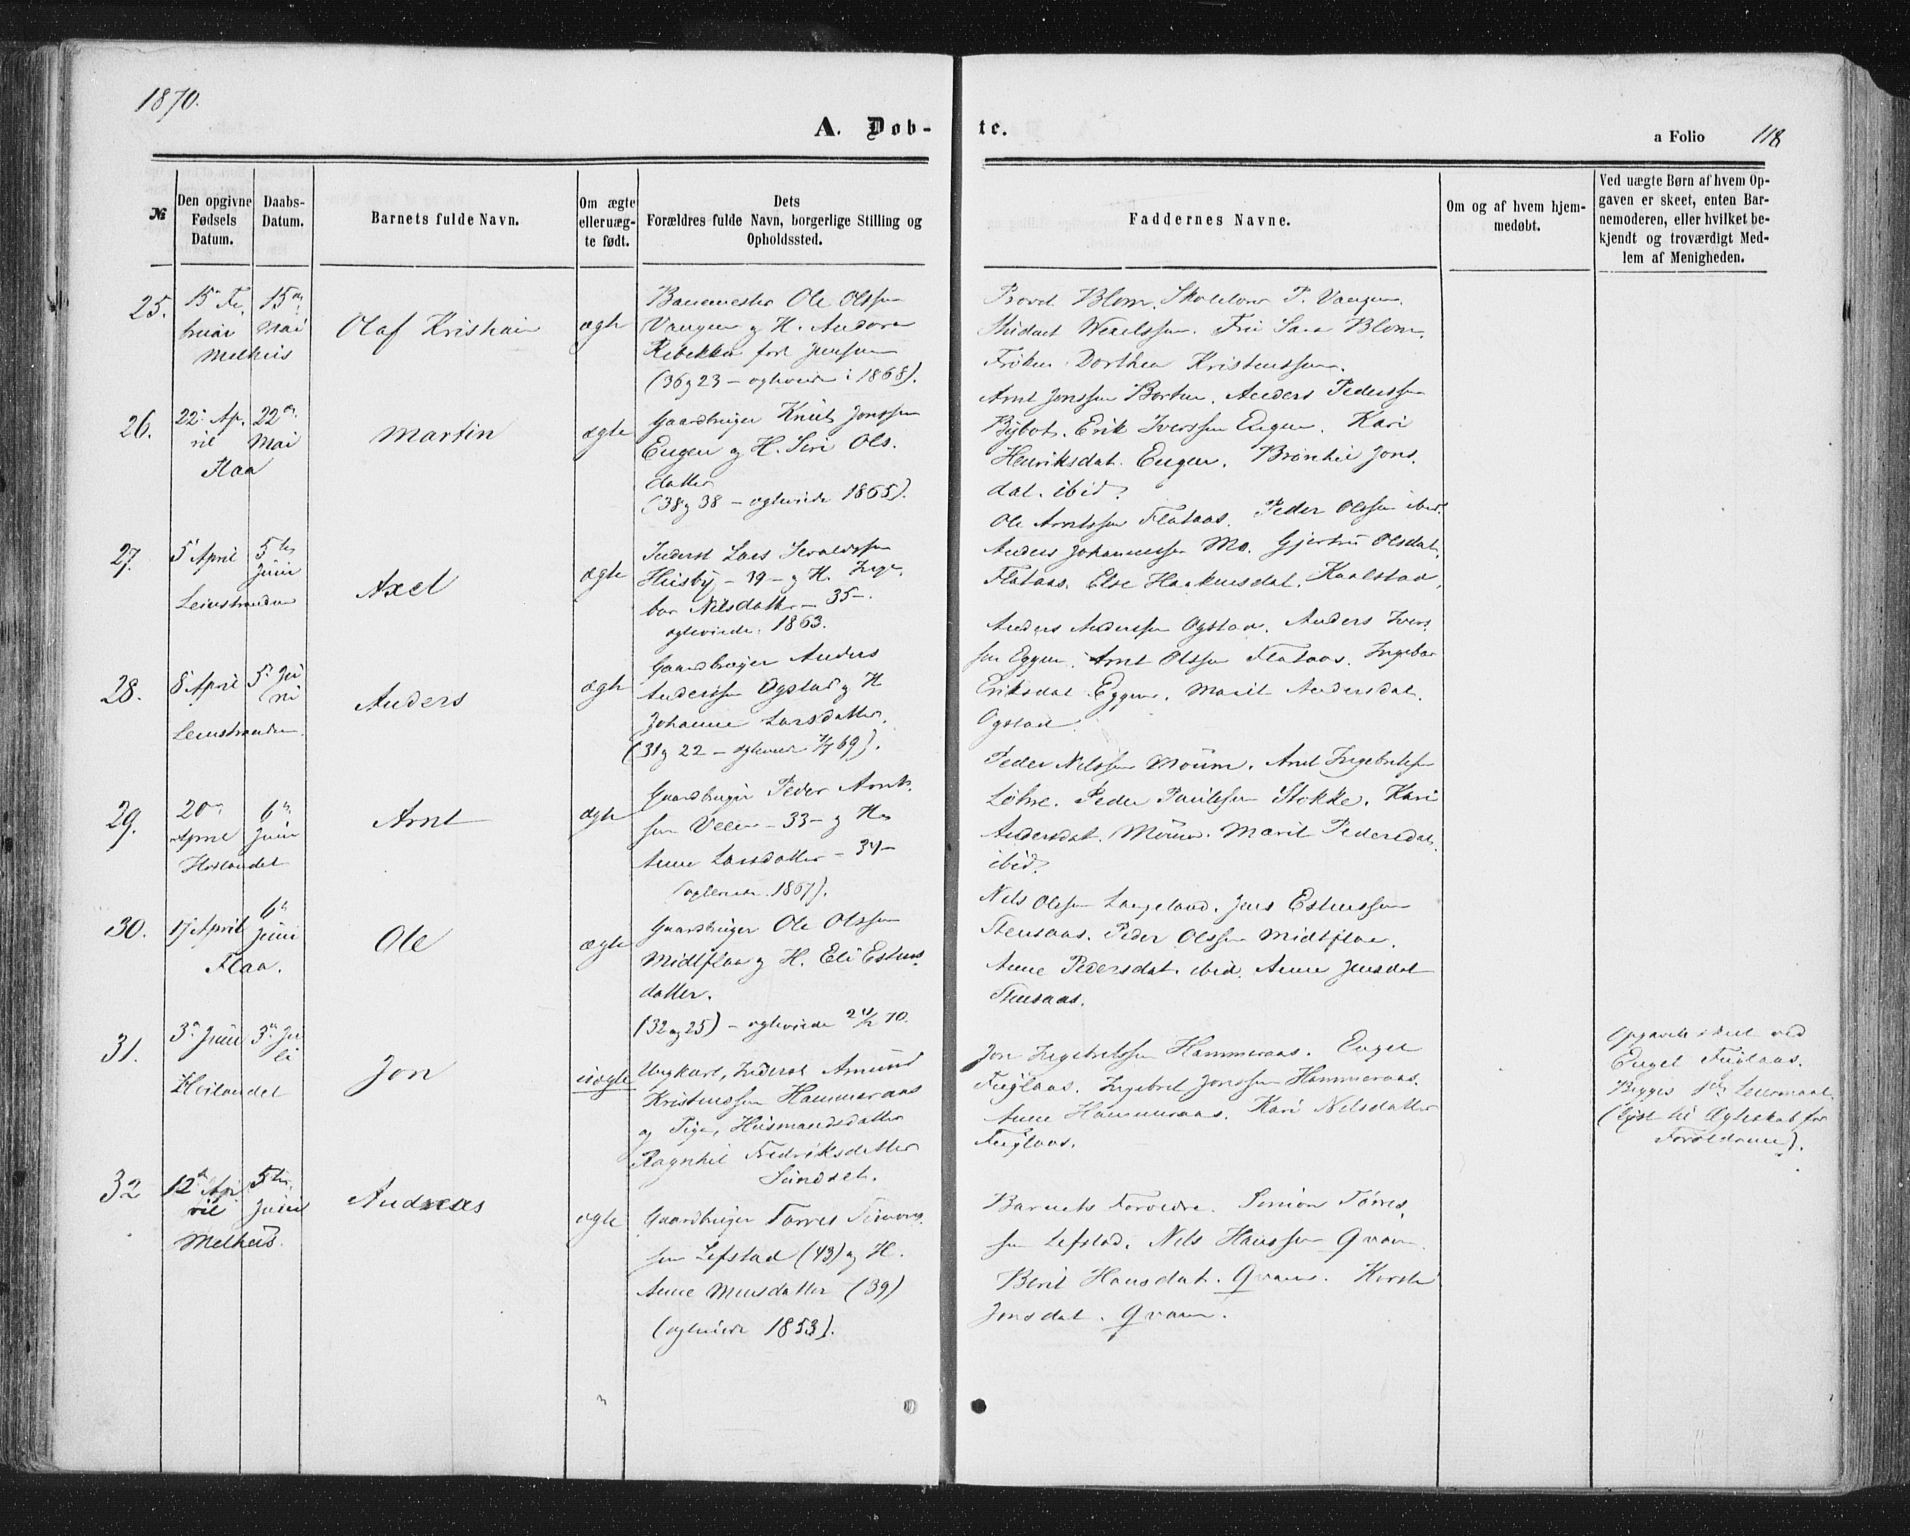 1870.
A. Døb-
te.
a Folio 118
№
Den opgivne
Fødsels
Datum.
Daabs-
Datum.
Barnets fulde Navn.
Om ægte
eller uæg-
te født.
Dets
Forældres fulde Navn, borgerlige Stilling og
Opholdssted.
Faddernes Navne.
Om og af hvem hjem-
medøbt.
Ved uægte Børn af hvem Op-
gaven er skeet, enten Bar-
nemoderen, eller hvilket be-
kjendt og troværdigt Med-
lem af Menigheden.
25.
15 Fe
bruar
Melhus
15
Mai
Olaf Kristian
ægte
Ole Olssen
Vangen og H.
Rebekka født Jensen
(36 og 23 – ægteviede i 1868).
Provst Blom. P. Vangen.
Student Wexelssen. Blom.
Frøken Dorthea Kristenssen.
26.
22 Ap.
ril
Flaa
22
Mai
Martin
ægte
Gaardbruger Knut Jonssen
Engen og H. Siri Ols.
datter
(38 og 38 – ægteviede 1865).
Arnt Jonssen Borten. Anders Pederssen
Bybot. Erik Iverssen Engen. Kari
Henriksdat. Engen. Jons
dat. ibid.
27.
5 April
Leinstranden
5te
Juni
Axel
ægte
Inderst Lars
Huusby – 39 – og H. Inge
bor Nilsdatter – 35 –
ægteviede 1863.
Ole Arntssen Flataas. Peder Olssen ibid.
Anders Johannessen Mo. Gjertru Olsdat.
Flataas. Else Haakensdat. Kaalstad
28.
8 April
Leinstranden
5 Ju
ni
Anders
ægte
Gaardbruger Anders
Anderssen Øgstad og H
Johanne Larsdatter.
(31 og 22 – ægteviede 69).
Anders Anderssen Øgstad. Anders Ivers
sen Eggen. Arnt Olssen Flataas. Ingebor
Eriksdat. Eggen. Marit Andersdat.
Øgstad.
29.
20
April
Hølandet
6
Juni
Arnt
ægte
Gaardbruger Peder Arnt.
sen – 33 – og H.
Anne Larsdatter – 34 –
(ægteviede 1867).
Peder Nilssen Mouum. Arnt Ingebrigtsen
Løhre. Peder Paulssen Stokke. Kari
Andersdat. Marit Pedersdat.
ibid.
30.
17 April
Flaa.
6
Juni
Ole
ægte
Gaardbruger Ole Olssen
Midtflaa og H. Eli Estens.
datter.
(32 og 25) – ægteviede 70.
Nils Olssen Langeland. Jens Estenssen
Stensaas. Peder Olssen Midtflaa.
Anne Pedersdat. ibid. Anne Jensdat
Stensaas.
31.
3 Juni
Hølandet
3 Ju
li
Jon
uægte
Ungkarl, Inderst Amund
Kristenssen Hammeraas
og Pige, Huusmandsdatter
Ragnhil Fredriksdatter
Sundset.
Jon Ingebrigtsen Hammeraas. Engel
Fuglaas. Ingebret Jonssen Hammeraas.
Anne Hammeraas. Kari Nilsdatter
Fuglaas.
Opgaven skeet ved
Engel Fuglaas.
Begges 1ste Leiermaal
(lyst til Ægteskab for
Forældrene).
32
12 Ap
ril
Melhus.
5te
Juni
Andreas
ægte
Gaardbruger Tørres Simons.
sen Løfstad (43) og H.
Anne Monsdatter (39)
(ægteviede 1853).
Barnets Forældre. Simon Tørres.
sen Løfstad. Nils Hanssen Qvam.
Berit Hansdat. Qvam.
Jonsdat. Qvam.